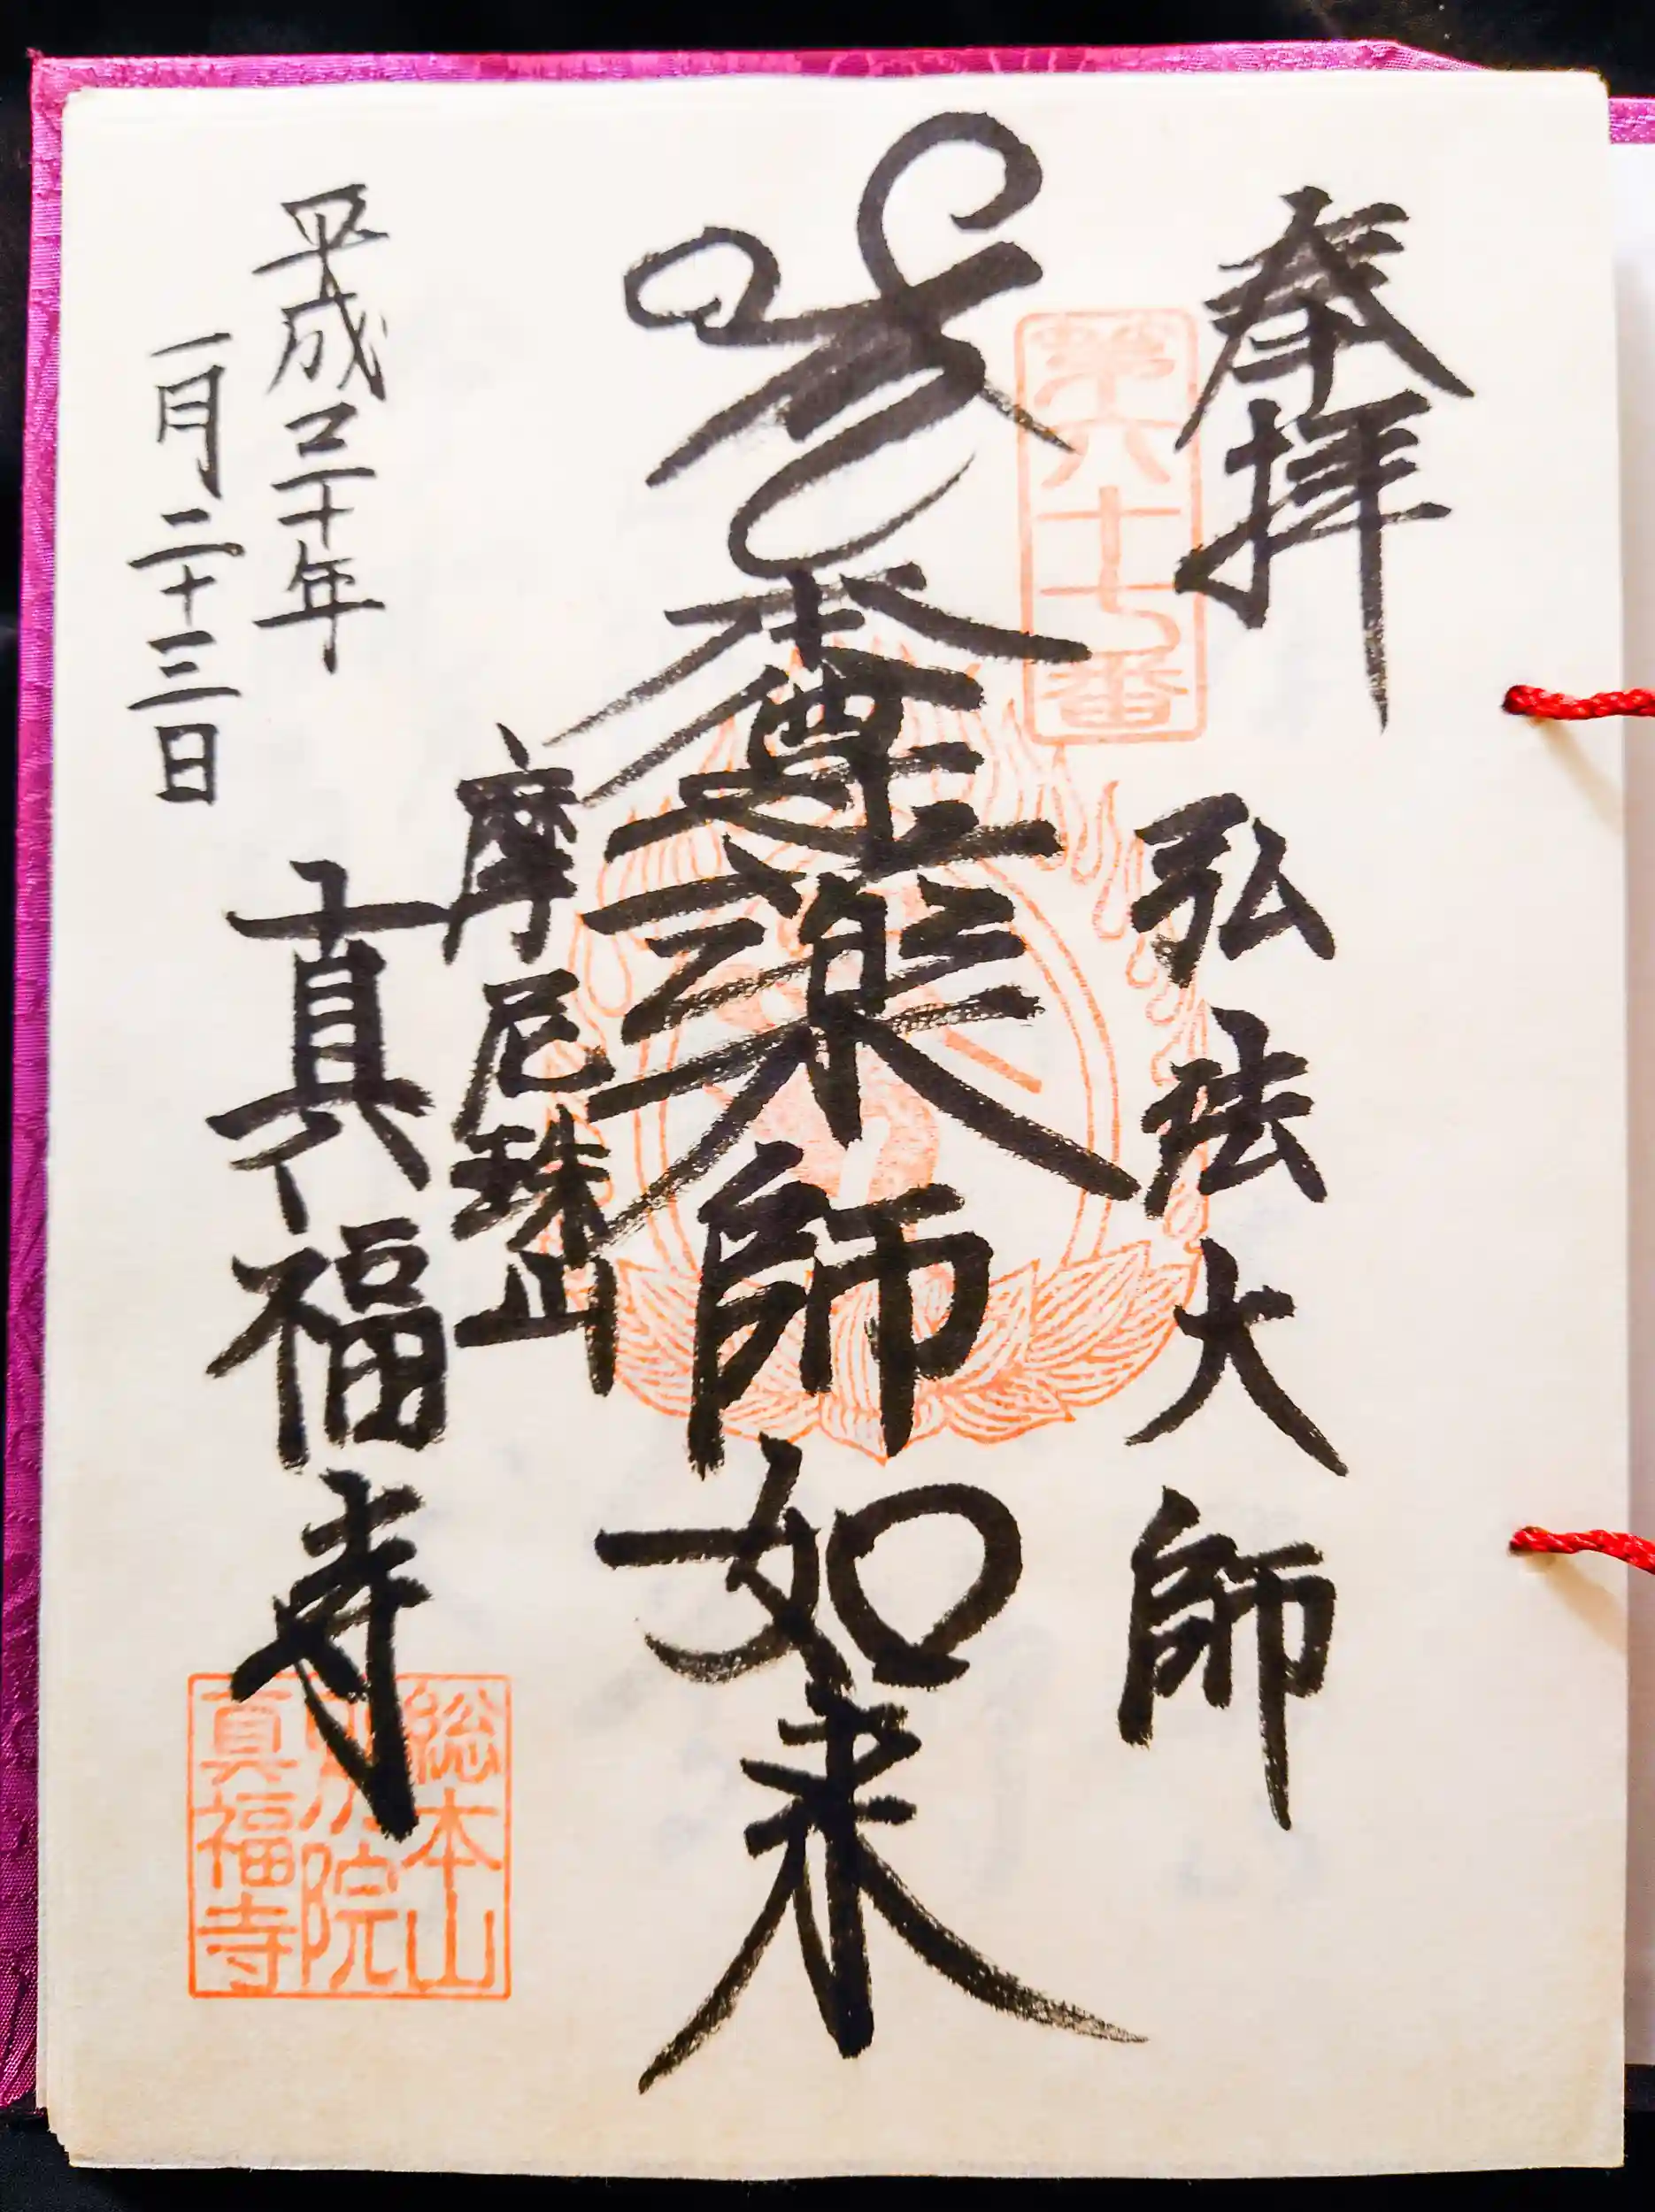 奉拝
第六十七番
弘法大師
本尊薬師如来
摩尼珠山
真福寺
平成三十年
一月二十三日
総本山
院
真福寺